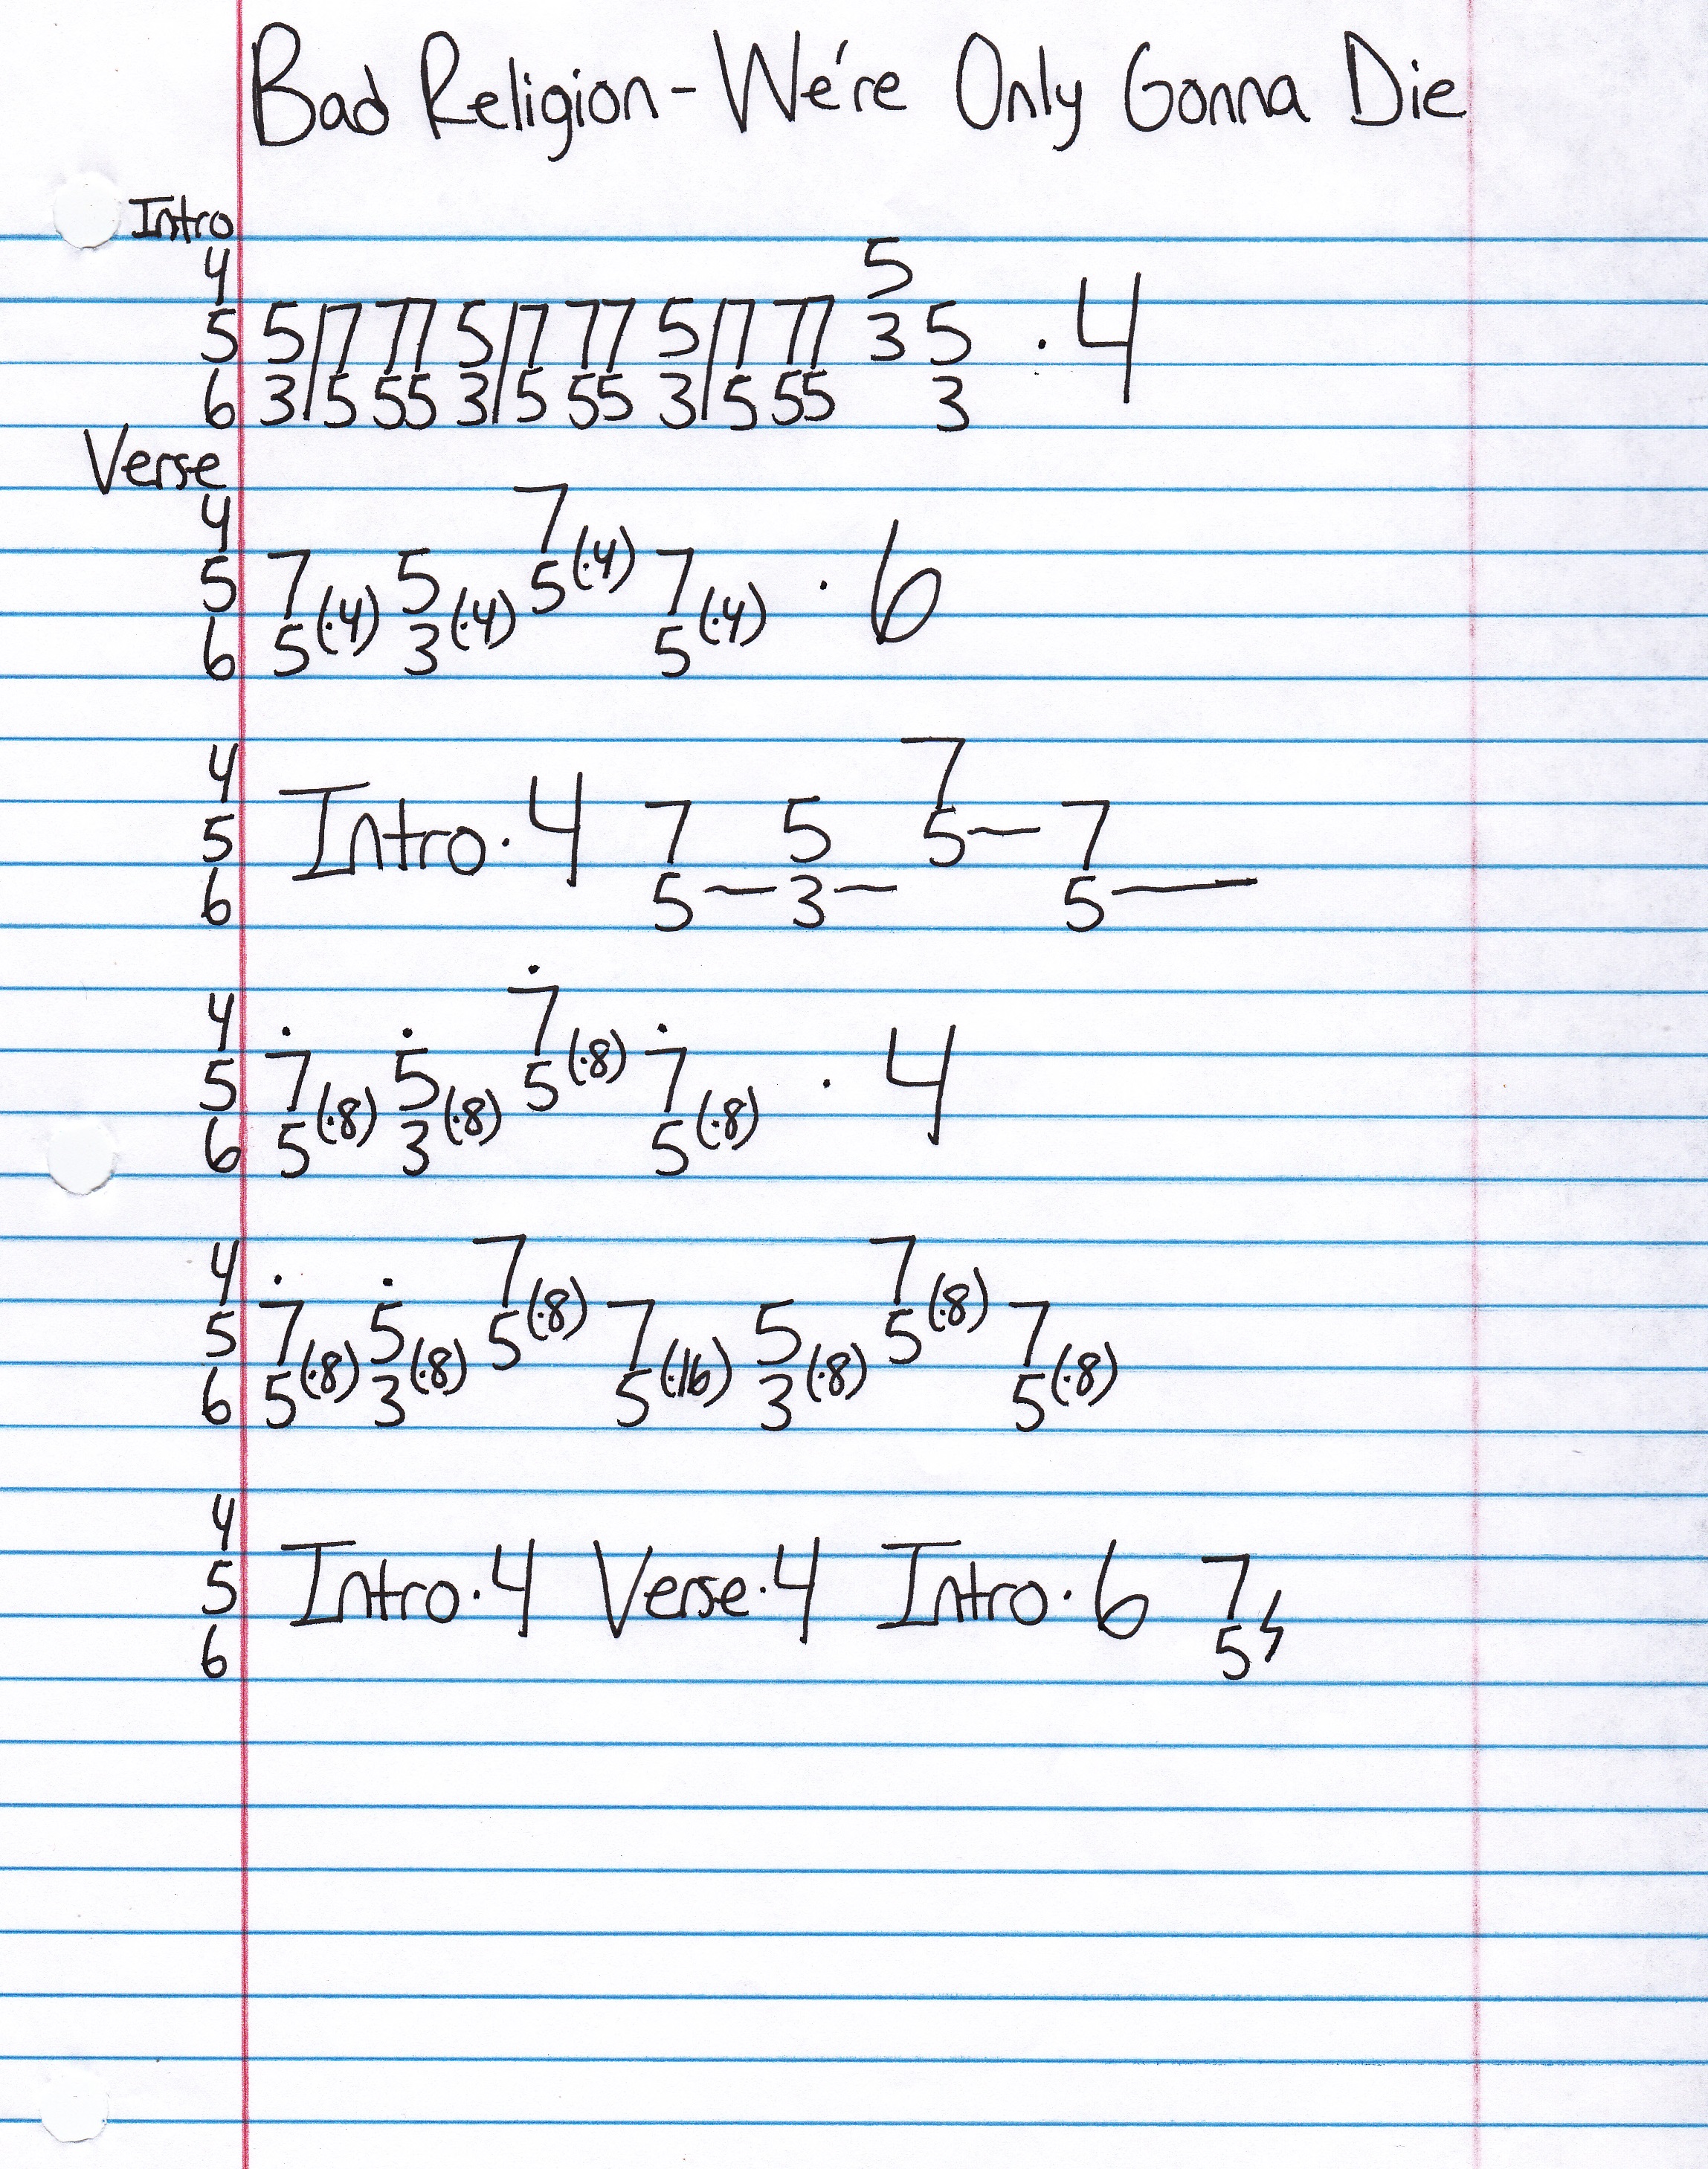 Bad Religion - We're Only Gonna Die
Intro
4 5
5 5/7 77 5/7 77 5/7 77 3 5 · 4
6 3/5 55 3/5 55 3/5 55 3
Verse
4 7
5 7 5 5(·4) 7 · 6
6 5(·4) 3(·4) 5(·4)
4 7
5 Intro · 4 7 5 5— 7
6 5— 3— 5—
4 7
5 7 5 5(·8) 7 · 4
6 5(·8) 3(·8) 5(·8)
4 7 7
5 7 5 5(·8) 7 5 5(·8) 7
6 5(·8) 3(·8) 5(·16) 3(·8) 5(·8)
4
5 Intro · 4 Verse · 4 Intro · 6 7
6 5